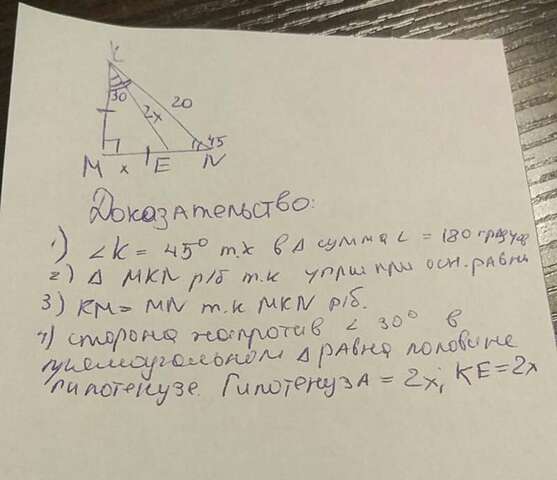 K
30
2x
20
45
M x E N
Доказательство:
1) ∠K = 45° т.к в Δ сумма ∠ = 180 градусов
2) Δ MKN р/б т.к углы при осн. равны
3) KM = MN т.к MKN р/б.
4) сторона напротив ∠ 30° в
прямоугольном Δ равна половине
гипотенузе. Гипотенуза = 2x; KE=2x